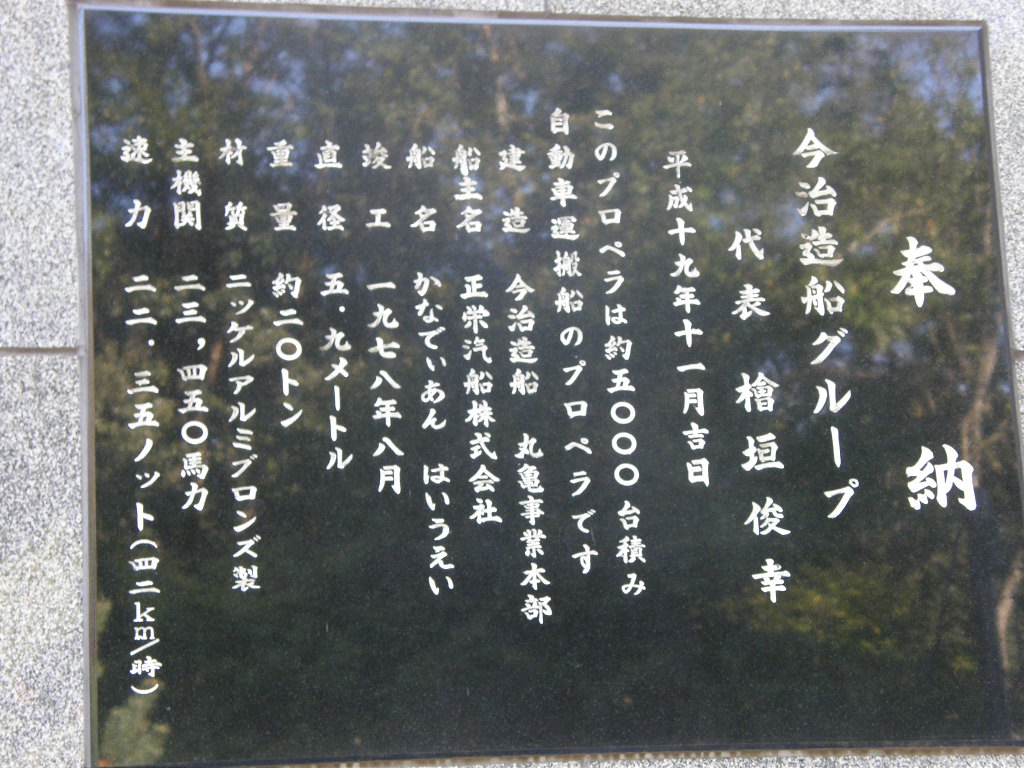 奉納
今治造船グループ
代表 檜垣俊幸
平成十九年十一月吉日
このプロペラは約五〇〇〇台積み
自動車運搬船のプロペラです
建造 今治造船 丸亀事業本部
船主名 正栄汽船株式会社
船名 かなでぃあん はいうえい
竣工 一九七八年八月
直径 五．九メートル
重量 約二〇トン
材質 ニッケルアルミブロンズ製
主機関 二三，四五〇馬力
速力 二二．三五ノット（四二km/時）